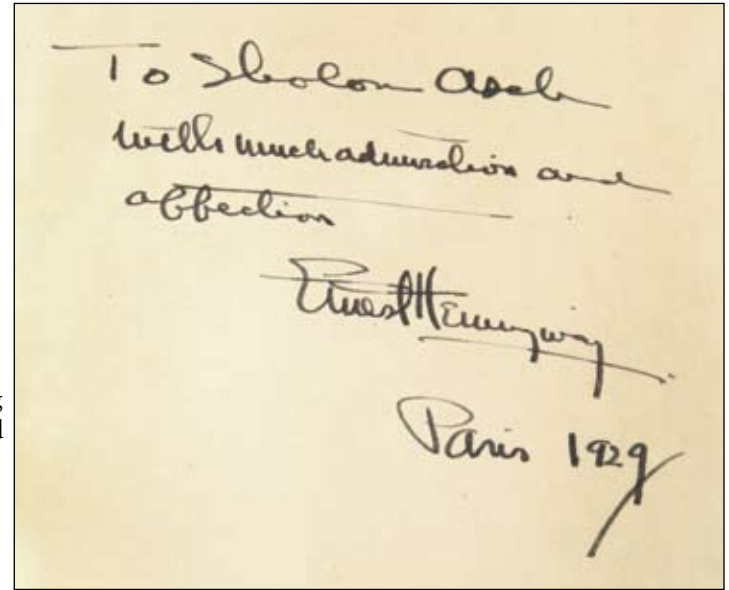 To Sholom Asch
with much admiration and
affection
Ernest Hemingway
Paris 1929